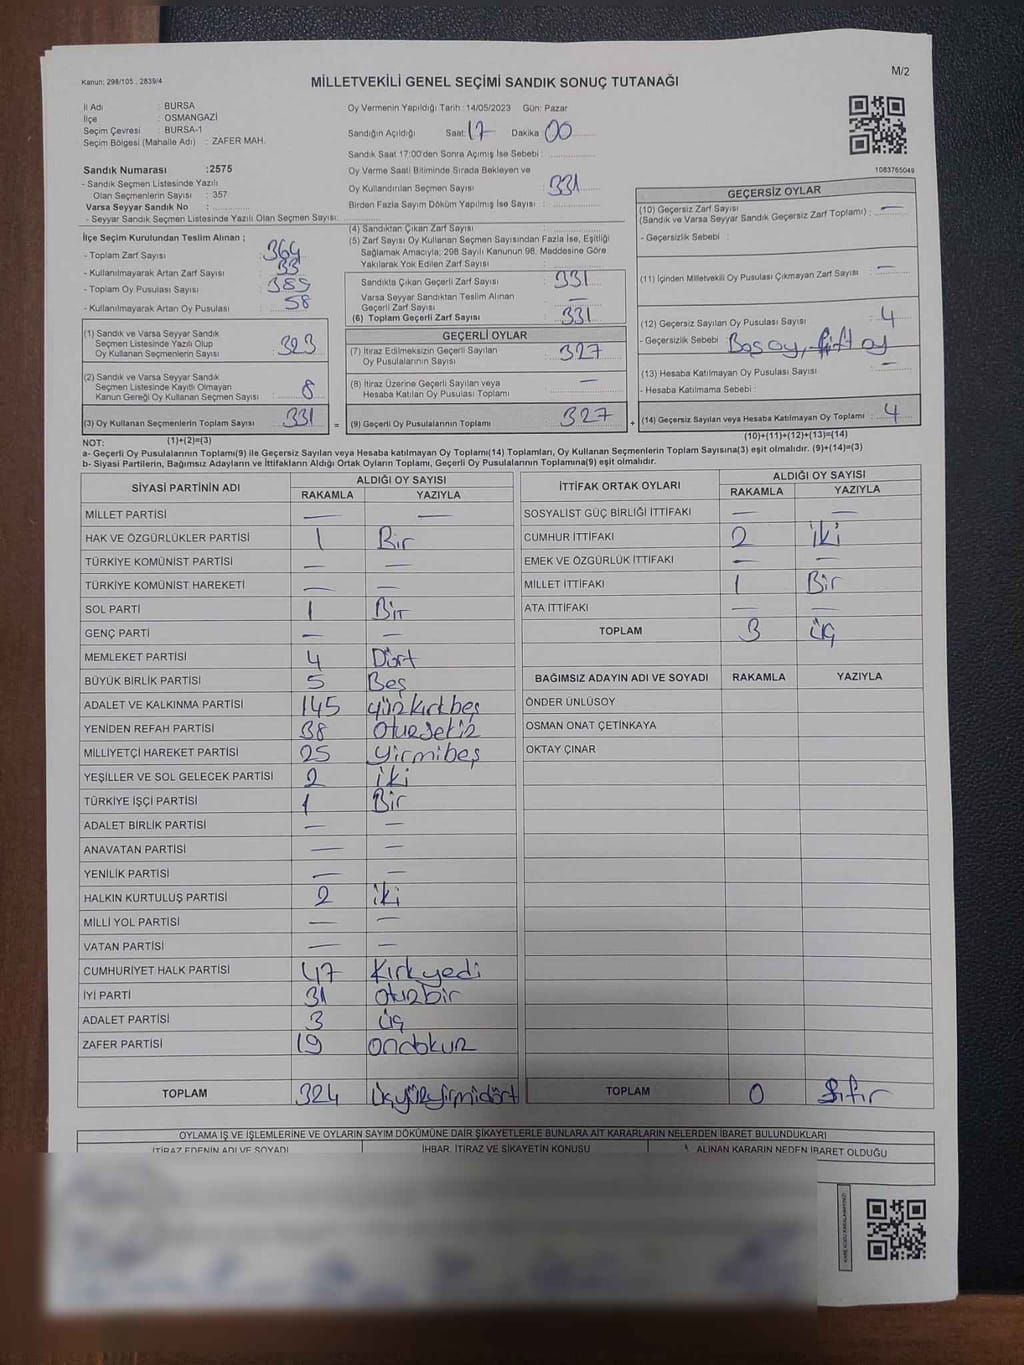 Kanun: 298/105 , 2839/4
MİLLETVEKİLİ GENEL SEÇİMİ SANDIK SONUÇ TUTANAĞI
M/2
İl Adı : BURSA
İlçe : OSMANGAZİ
Seçim Çevresi : BURSA-1
Seçim Bölgesi (Mahalle Adı) : ZAFER MAH.
Sandık Numarası :2575
- Sandık Seçmen Listesinde Yazılı
Olan Seçmenlerin Sayısı : 357
Varsa Seyyar Sandık No :
- Seyyar Sandık Seçmen Listesinde Yazılı Olan Seçmen Sayısı:
Oy Vermenin Yapıldığı Tarih : 14/05/2023 Gün: Pazar
Sandığın Açıldığı Saat 17 Dakika 00
Sandık Saat 17:00'den Sonra Açımış İse Sebebi :
Oy Verme Saati Bitiminde Sırada Bekleyen ve
Oy Kullandırılan Seçmen Sayısı : 331
Birden Fazla Sayım Döküm Yapılmış İse Sayısı :
1083765049
İlçe Seçim Kurulundan Teslim Alınan ;
- Toplam Zarf Sayısı : 364
- Kullanılmayarak Artan Zarf Sayısı : 33
- Toplam Oy Pusulası Sayısı : 385
- Kullanılmayarak Artan Oy Pusulası : 58
(1) Sandık ve Varsa Seyyar Sandık
Seçmen Listesinde Yazılı Olup
Oy Kullanan Seçmenlerin Sayısı : 323
(2) Sandık ve Varsa Seyyar Sandık
Seçmen Listesinde Kayıtlı Olmayan
Kanun Gereği Oy Kullanan Seçmen Sayısı : 8
(3) Oy Kullanan Seçmenlerin Toplam Sayısı : 331
(4) Sandıktan Çıkan Zarf Sayısı :
(5) Zarf Sayısı Oy Kullanan Seçmen Sayısından Fazla İse, Eşitliği
Sağlamak Amacıyla, 298 Sayılı Kanunun 98. Maddesine Göre
Yakılarak Yok Edilen Zarf Sayısı :
Sandıkta Çıkan Geçerli Zarf Sayısı : 331
Varsa Seyyar Sandıktan Teslim Alınan
Geçerli Zarf Sayısı : —
(6) Toplam Geçerli Zarf Sayısı : 331
GEÇERLİ OYLAR
(7) İtiraz Edilmeksizin Geçerli Sayılan
Oy Pusulalarının Sayısı : 327
(8) İtiraz Üzerine Geçerli Sayılan veya
Hesaba Katılan Oy Pusulası Toplamı : —
= (9) Geçerli Oy Pusulalarının Toplamı : 327
GEÇERSİZ OYLAR
(10) Geçersiz Zarf Sayısı
(Sandık ve Varsa Seyyar Sandık Geçersiz Zarf Toplamı) : —
- Geçersizlik Sebebi :
(11) İçinden Milletvekili Oy Pusulası Çıkmayan Zarf Sayısı : —
(12) Geçersiz Sayılan Oy Pusulası Sayısı : 4
- Geçersizlik Sebebi : Boş oy, çift oy
(13) Hesaba Katılmayan Oy Pusulası Sayısı : —
- Hesaba Katılmama Sebebi :
+ (14) Geçersiz Sayılan veya Hesaba Katılmayan Oy Toplamı : 4
NOT: (1)+(2)=(3) (10)+(11)+(12)+(13)=(14)
a- Geçerli Oy Pusulasının Toplamı(9) ile Geçersiz Sayılan veya Hesaba katılmayan Oy Toplamı(14) Toplamları, Oy Kullanan Seçmenlerin Toplam Sayısına(3) eşit olmalıdır. (9)+(14)=(3)
b- Siyasi Partilerin, Bağımsız Adayların ve İttifakların Aldığı Ortak Oyların Toplamı, Geçerli Oy Pusulalarının Toplamına(9) eşit olmalıdır.
SİYASİ PARTİNİN ADI ALDIĞI OY SAYISI
RAKAMLA YAZIYLA
MİLLET PARTİSİ — —
HAK VE ÖZGÜRLÜKLER PARTİSİ 1 Bir
TÜRKİYE KOMÜNİST PARTİSİ — —
TÜRKİYE KOMÜNİST HAREKETİ — —
SOL PARTİ 1 Bir
GENÇ PARTİ — —
MEMLEKET PARTİSİ 4 Dört
BÜYÜK BİRLİK PARTİSİ 5 Beş
ADALET VE KALKINMA PARTİSİ 145 yüzkırkbeş
YENİDEN REFAH PARTİSİ 38 otuzsekiz
MİLLİYETÇİ HAREKET PARTİSİ 25 yirmibeş
YEŞİLLER VE SOL GELECEK PARTİSİ 2 iki
TÜRKİYE İŞÇİ PARTİSİ 1 Bir
ADALET BİRLİK PARTİSİ — —
ANAVATAN PARTİSİ — —
YENİLİK PARTİSİ — —
HALKIN KURTULUŞ PARTİSİ 2 iki
MİLLİ YOL PARTİSİ — —
VATAN PARTİSİ — —
CUMHURİYET HALK PARTİSİ 47 Kırkyedi
İYİ PARTİ 31 otuzbir
ADALET PARTİSİ 3 üç
ZAFER PARTİSİ 19 ondokuz
TOPLAM 324 üçyüzyirmidört
İTTİFAK ORTAK OYLARI ALDIĞI OY SAYISI
RAKAMLA YAZIYLA
SOSYALİST GÜÇ BİRLİĞİ İTTİFAKI — —
CUMHUR İTTİFAKI 2 iki
EMEK VE ÖZGÜRLÜK İTTİFAKI — —
MİLLET İTTİFAKI 1 Bir
ATA İTTİFAKI — —
TOPLAM 3 üç
BAĞIMSIZ ADAYIN ADI VE SOYADI RAKAMLA YAZIYLA
ÖNDER ÜNLÜSOY
OSMAN ONAT ÇETİNKAYA
OKTAY ÇINAR
TOPLAM 0 Sıfır
OYLAMA İŞ VE İŞLEMLERİNE VE OYLARIN SAYIM DÖKÜMÜNE DAİR ŞİKAYETLERLE BUNLARA AİT KARARLARIN NELERDEN İBARET BULUNDUKLARI
İTİRAZ EDENİN ADI VE SOYADI İHBAR, İTİRAZ VE ŞİKAYETİN KONUSU ALINAN KARARIN NEDEN İBARET OLDUĞU